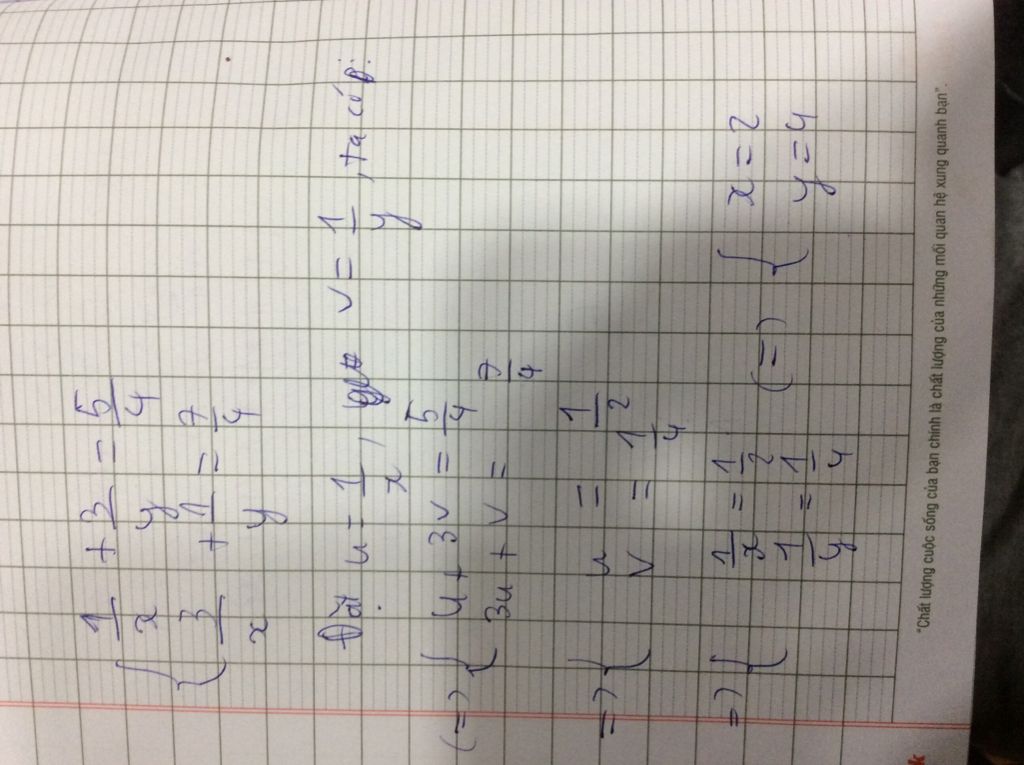 { 1/x + 3/y = 5/4
3/x + 1/y = 7/4
Đặt u = 1/x, v = 1/y, ta có:
(=) { u + 3v = 5/4
3u + v = 7/4
=) { u = 1/2
v = 1/4
=) { 1/x = 1/2 (=) { x = 2
1/y = 1/4 y = 4
"Chất lượng cuộc sống của bạn chính là chất lượng của những mối quan hệ xung quanh bạn".
k